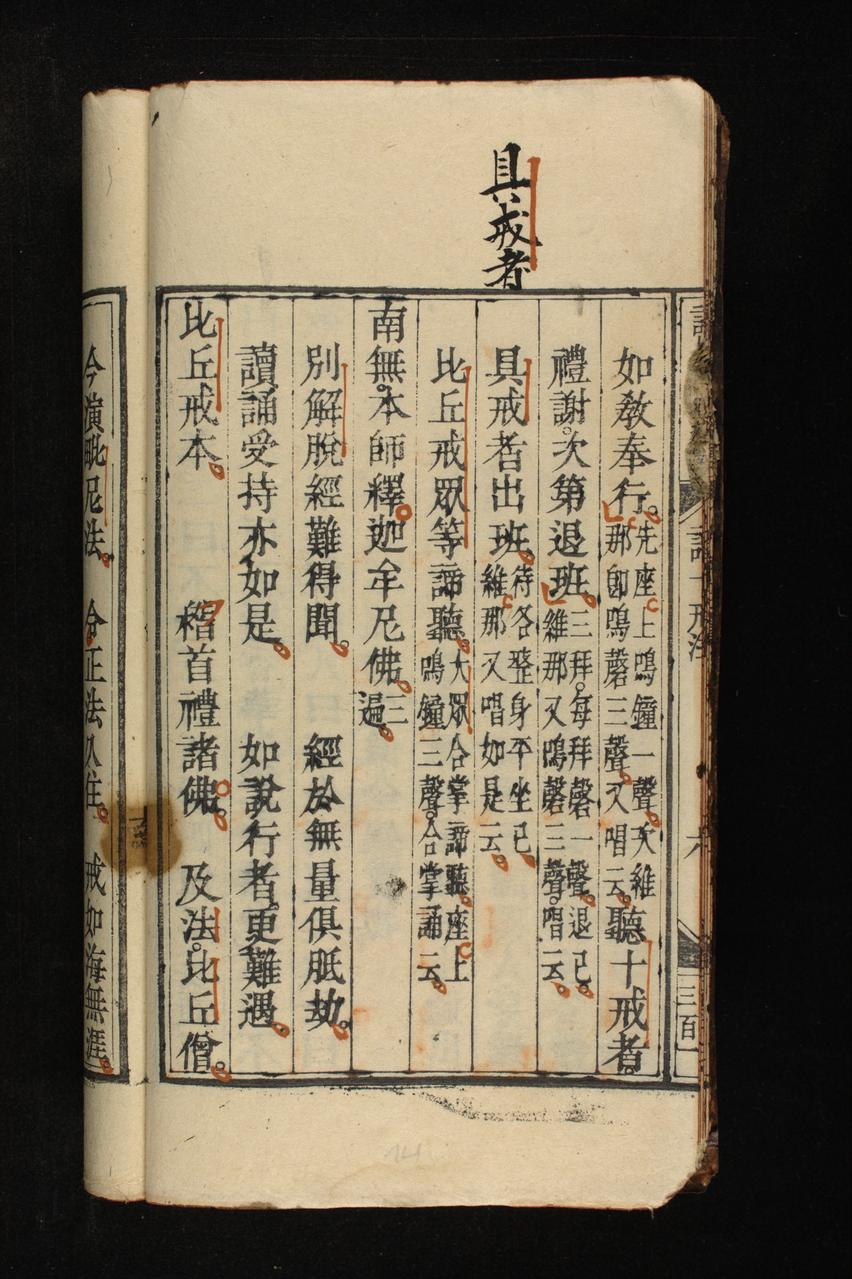 具戒者
如教奉行。先座上鳴鐘一聲。次維那卽鳴磬三聲。又唱云。聽十戒者。
禮謝。次第退班。三拜。每拜磬一聲。退已。維那又鳴磬三聲。唱云。
具戒者出班。待各整身平坐已。維那又唱如是云。
比丘戒眾等諦聽。大眾合掌諦聽。座上鳴鐘三聲。合掌誦云。
南無本師釋迦牟尼佛。三遍。
別解脫經難得聞。 經於無量俱胝劫。
讀誦受持亦如是。 如說行者更難遇。
比丘戒本。 稽首禮諸佛。 及法比丘僧。
今演毗尼法。 令正法久住。 戒如海無涯。
三百